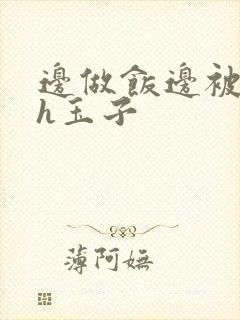 邊做飯邊被
h玉子
薄阿嫵